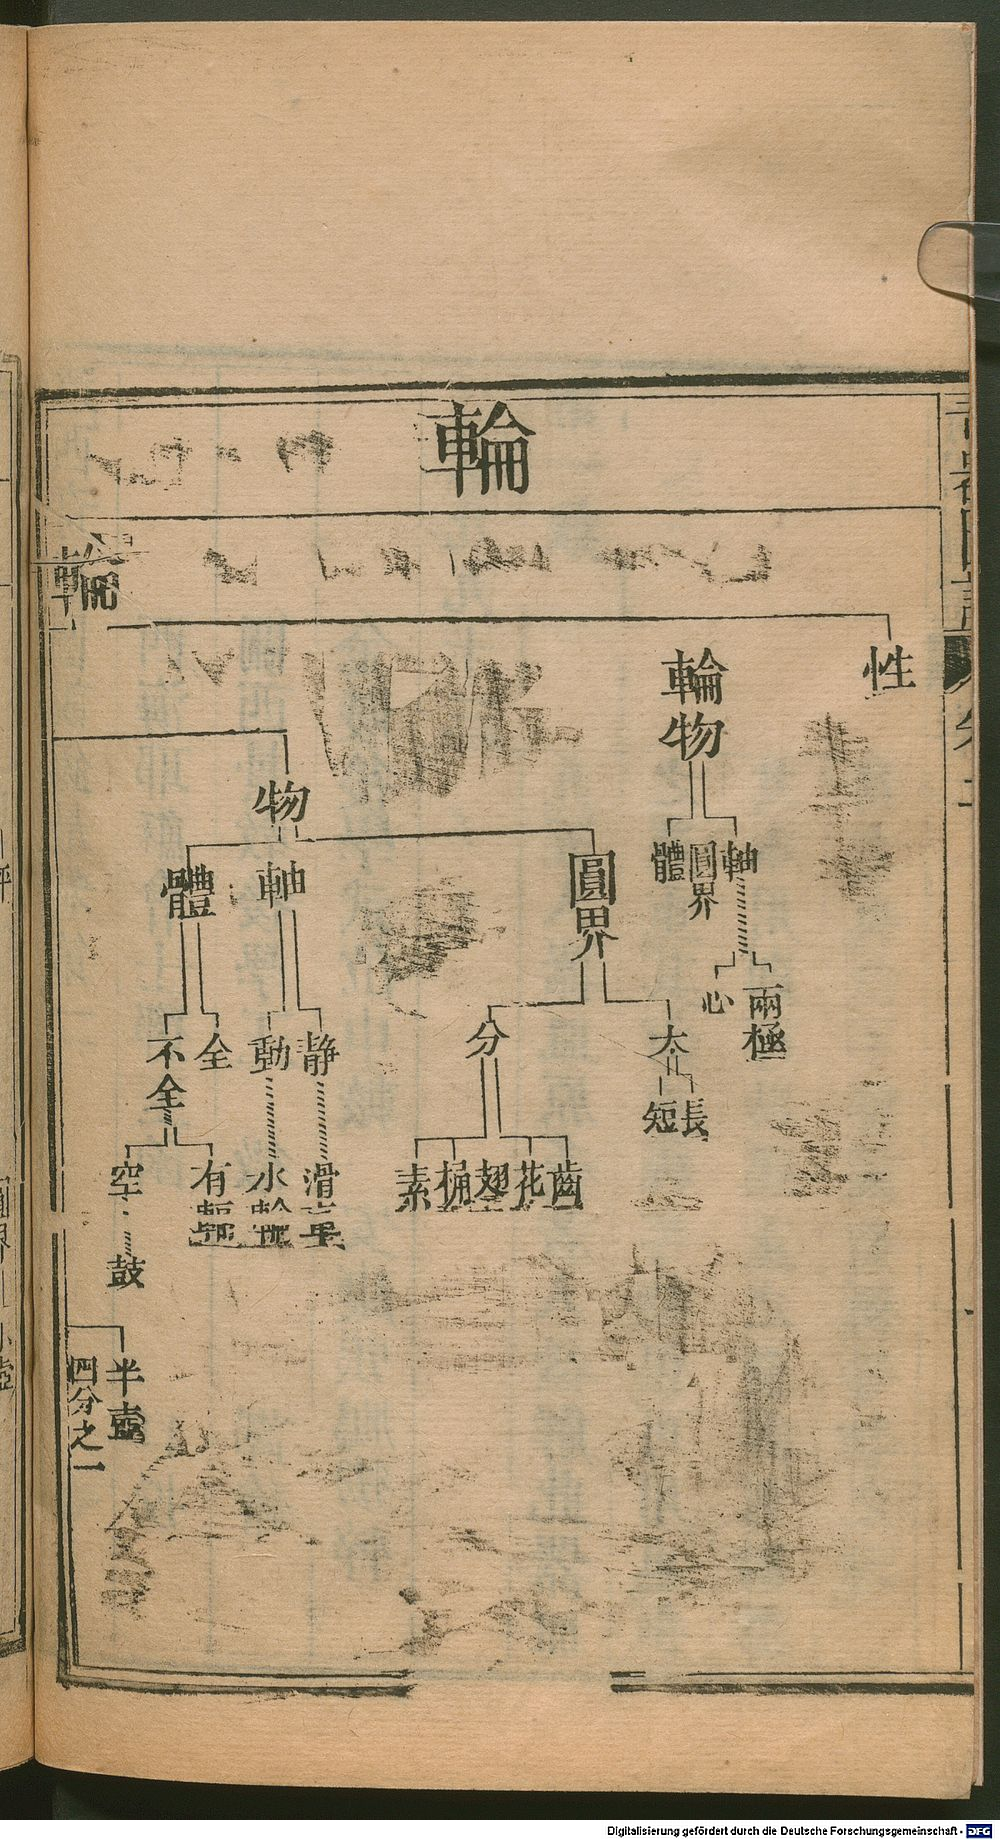 輪
輪
性
輪物
軸
圓界
體
兩極
心
物
圓界
軸
體
大
長
短
分
齒
花
翅
桶
素
静
滑車
動
水輪
全
不全
有輻
空
鼓
半壺
四分之一
Digitalisierung gefördert durch die Deutsche Forschungsgemeinschaft - DFG